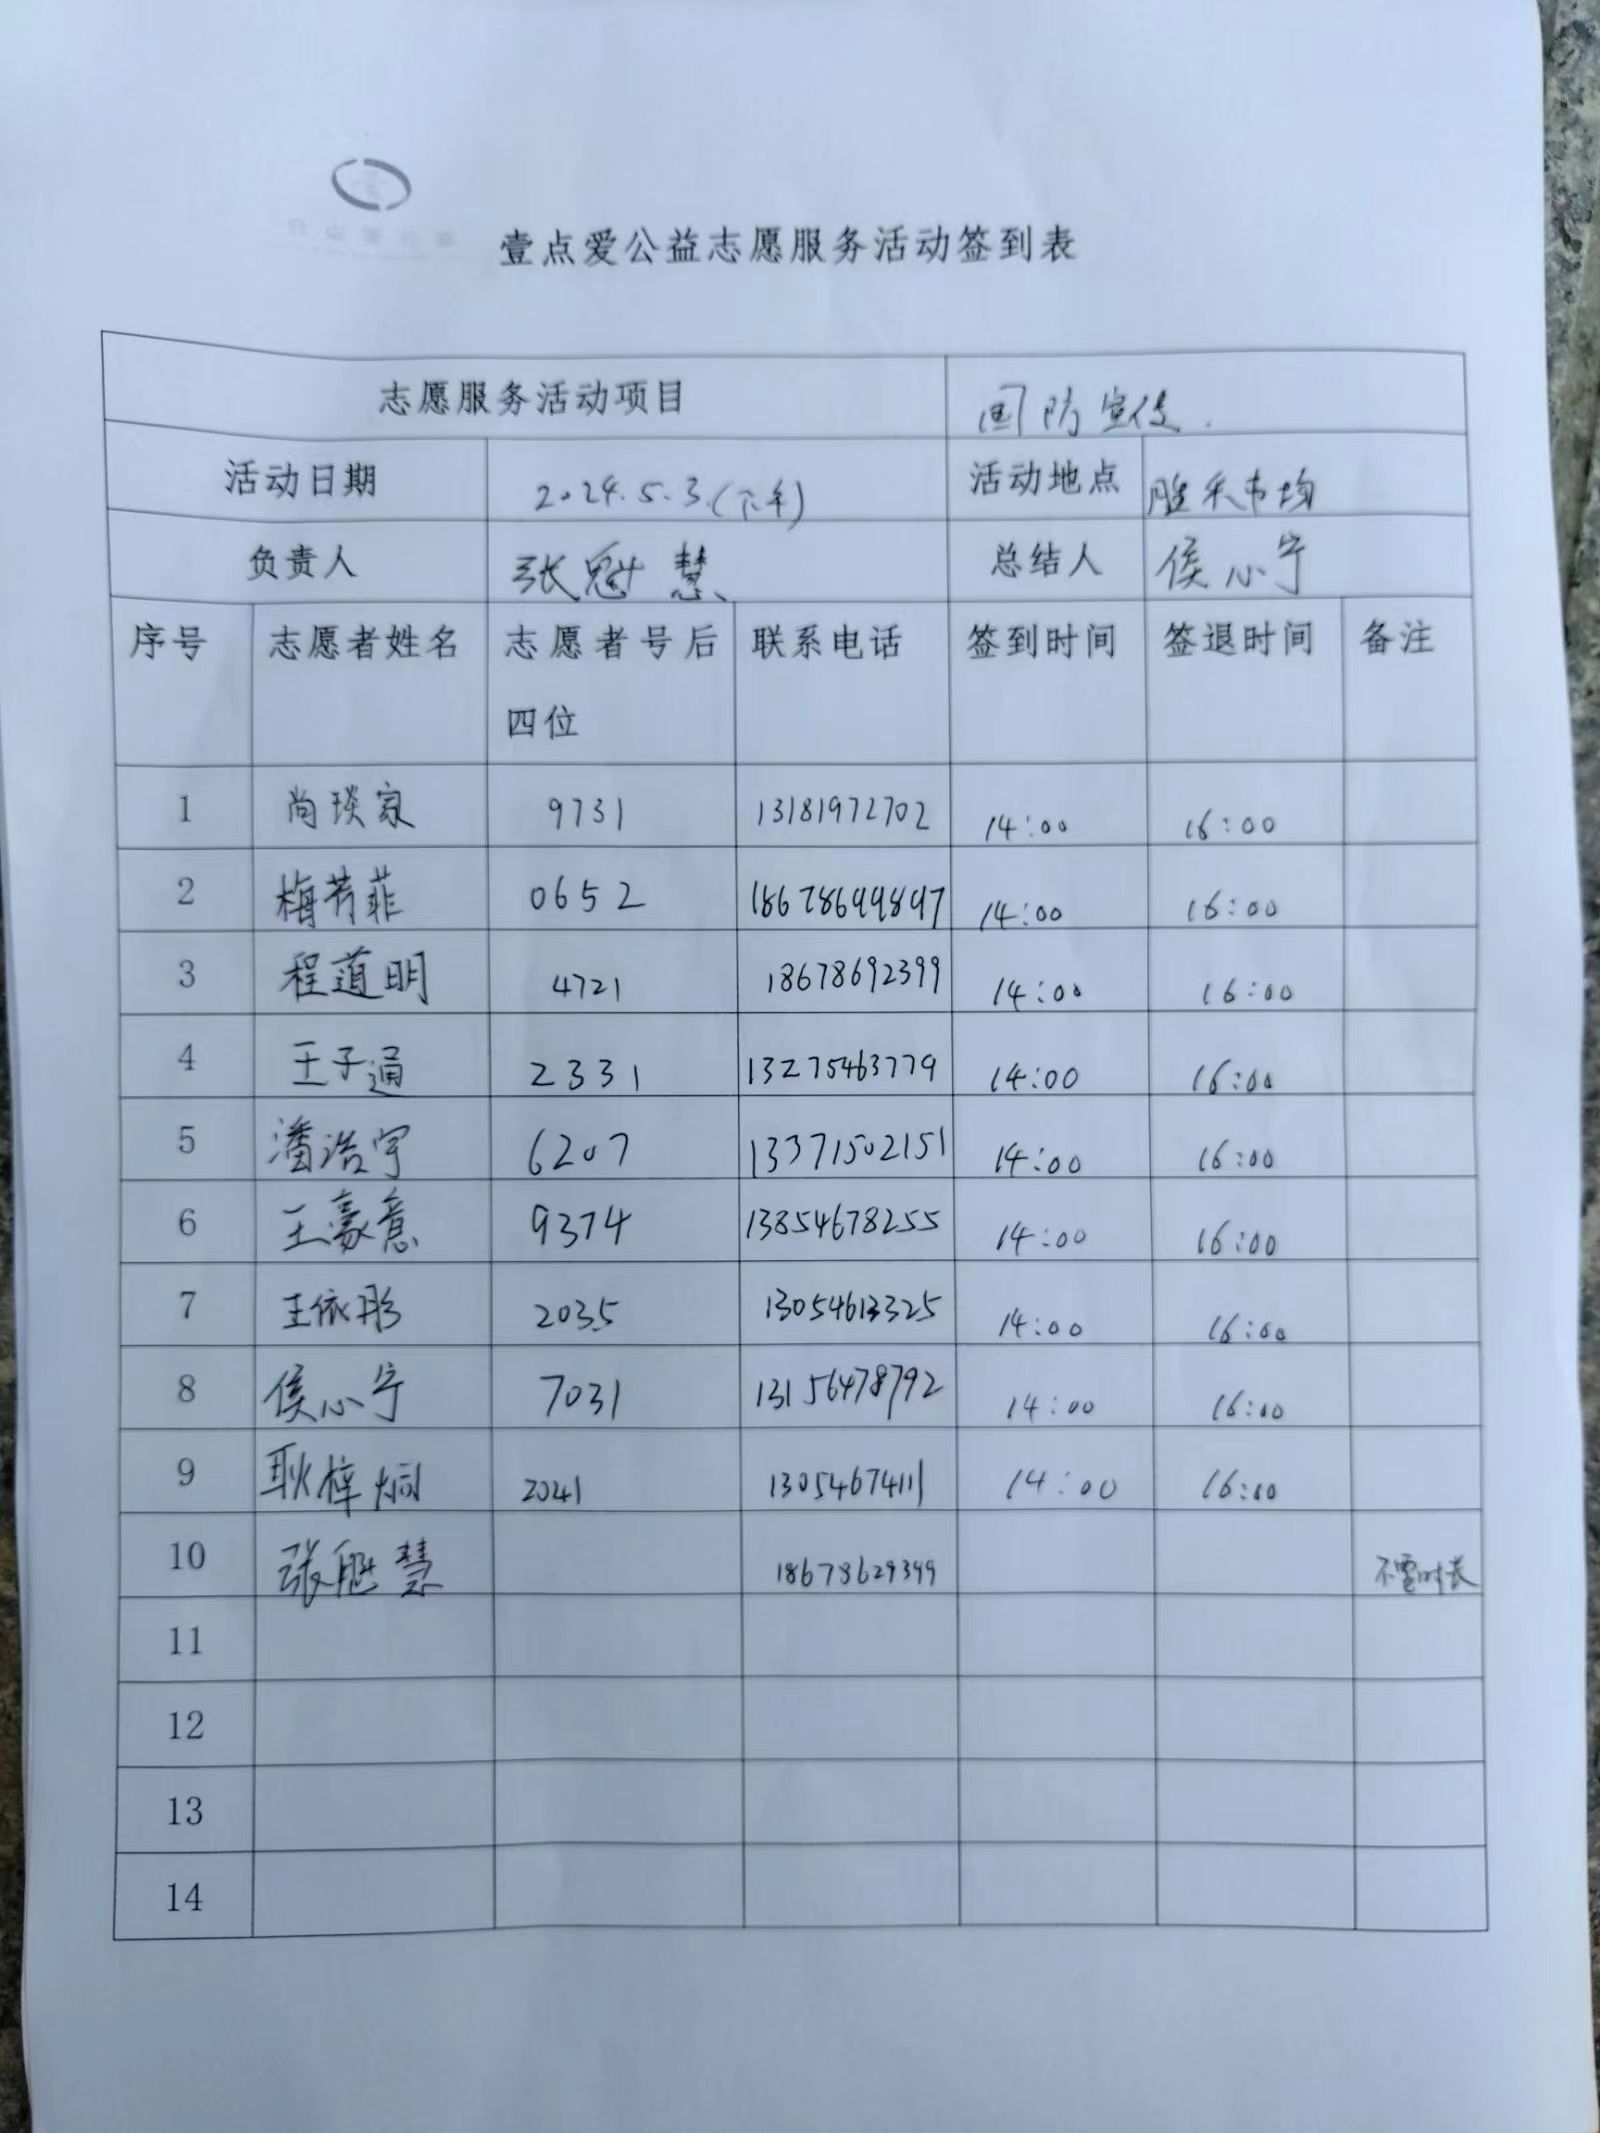 壹点爱公益志愿服务活动签到表
志愿服务活动项目 国防宣传.
活动日期 2024.5.3.(下午) 活动地点 胜采市场
负责人 张魁慧 总结人 侯心宁
序号 志愿者姓名 志愿者号后 联系电话 签到时间 签退时间 备注
四位
1 尚琰家 9731 13181972702 14:00 16:00
2 梅芳菲 0652 18678699897 14:00 16:00
3 程道明 4721 18678692399 14:00 16:00
4 王子通 2331 13275463779 14:00 16:00
5 潘浩宇 6207 13371502151 14:00 16:00
6 王豪意 9374 13854678255 14:00 16:00
7 王依彤 2035 13054613325 14:00 16:00
8 侯心宁 7031 13156478792 14:00 16:00
9 耿梓炯 2041 13054674111 14:00 16:00
10 张魁慧 18678629399 不需时长
11
12
13
14